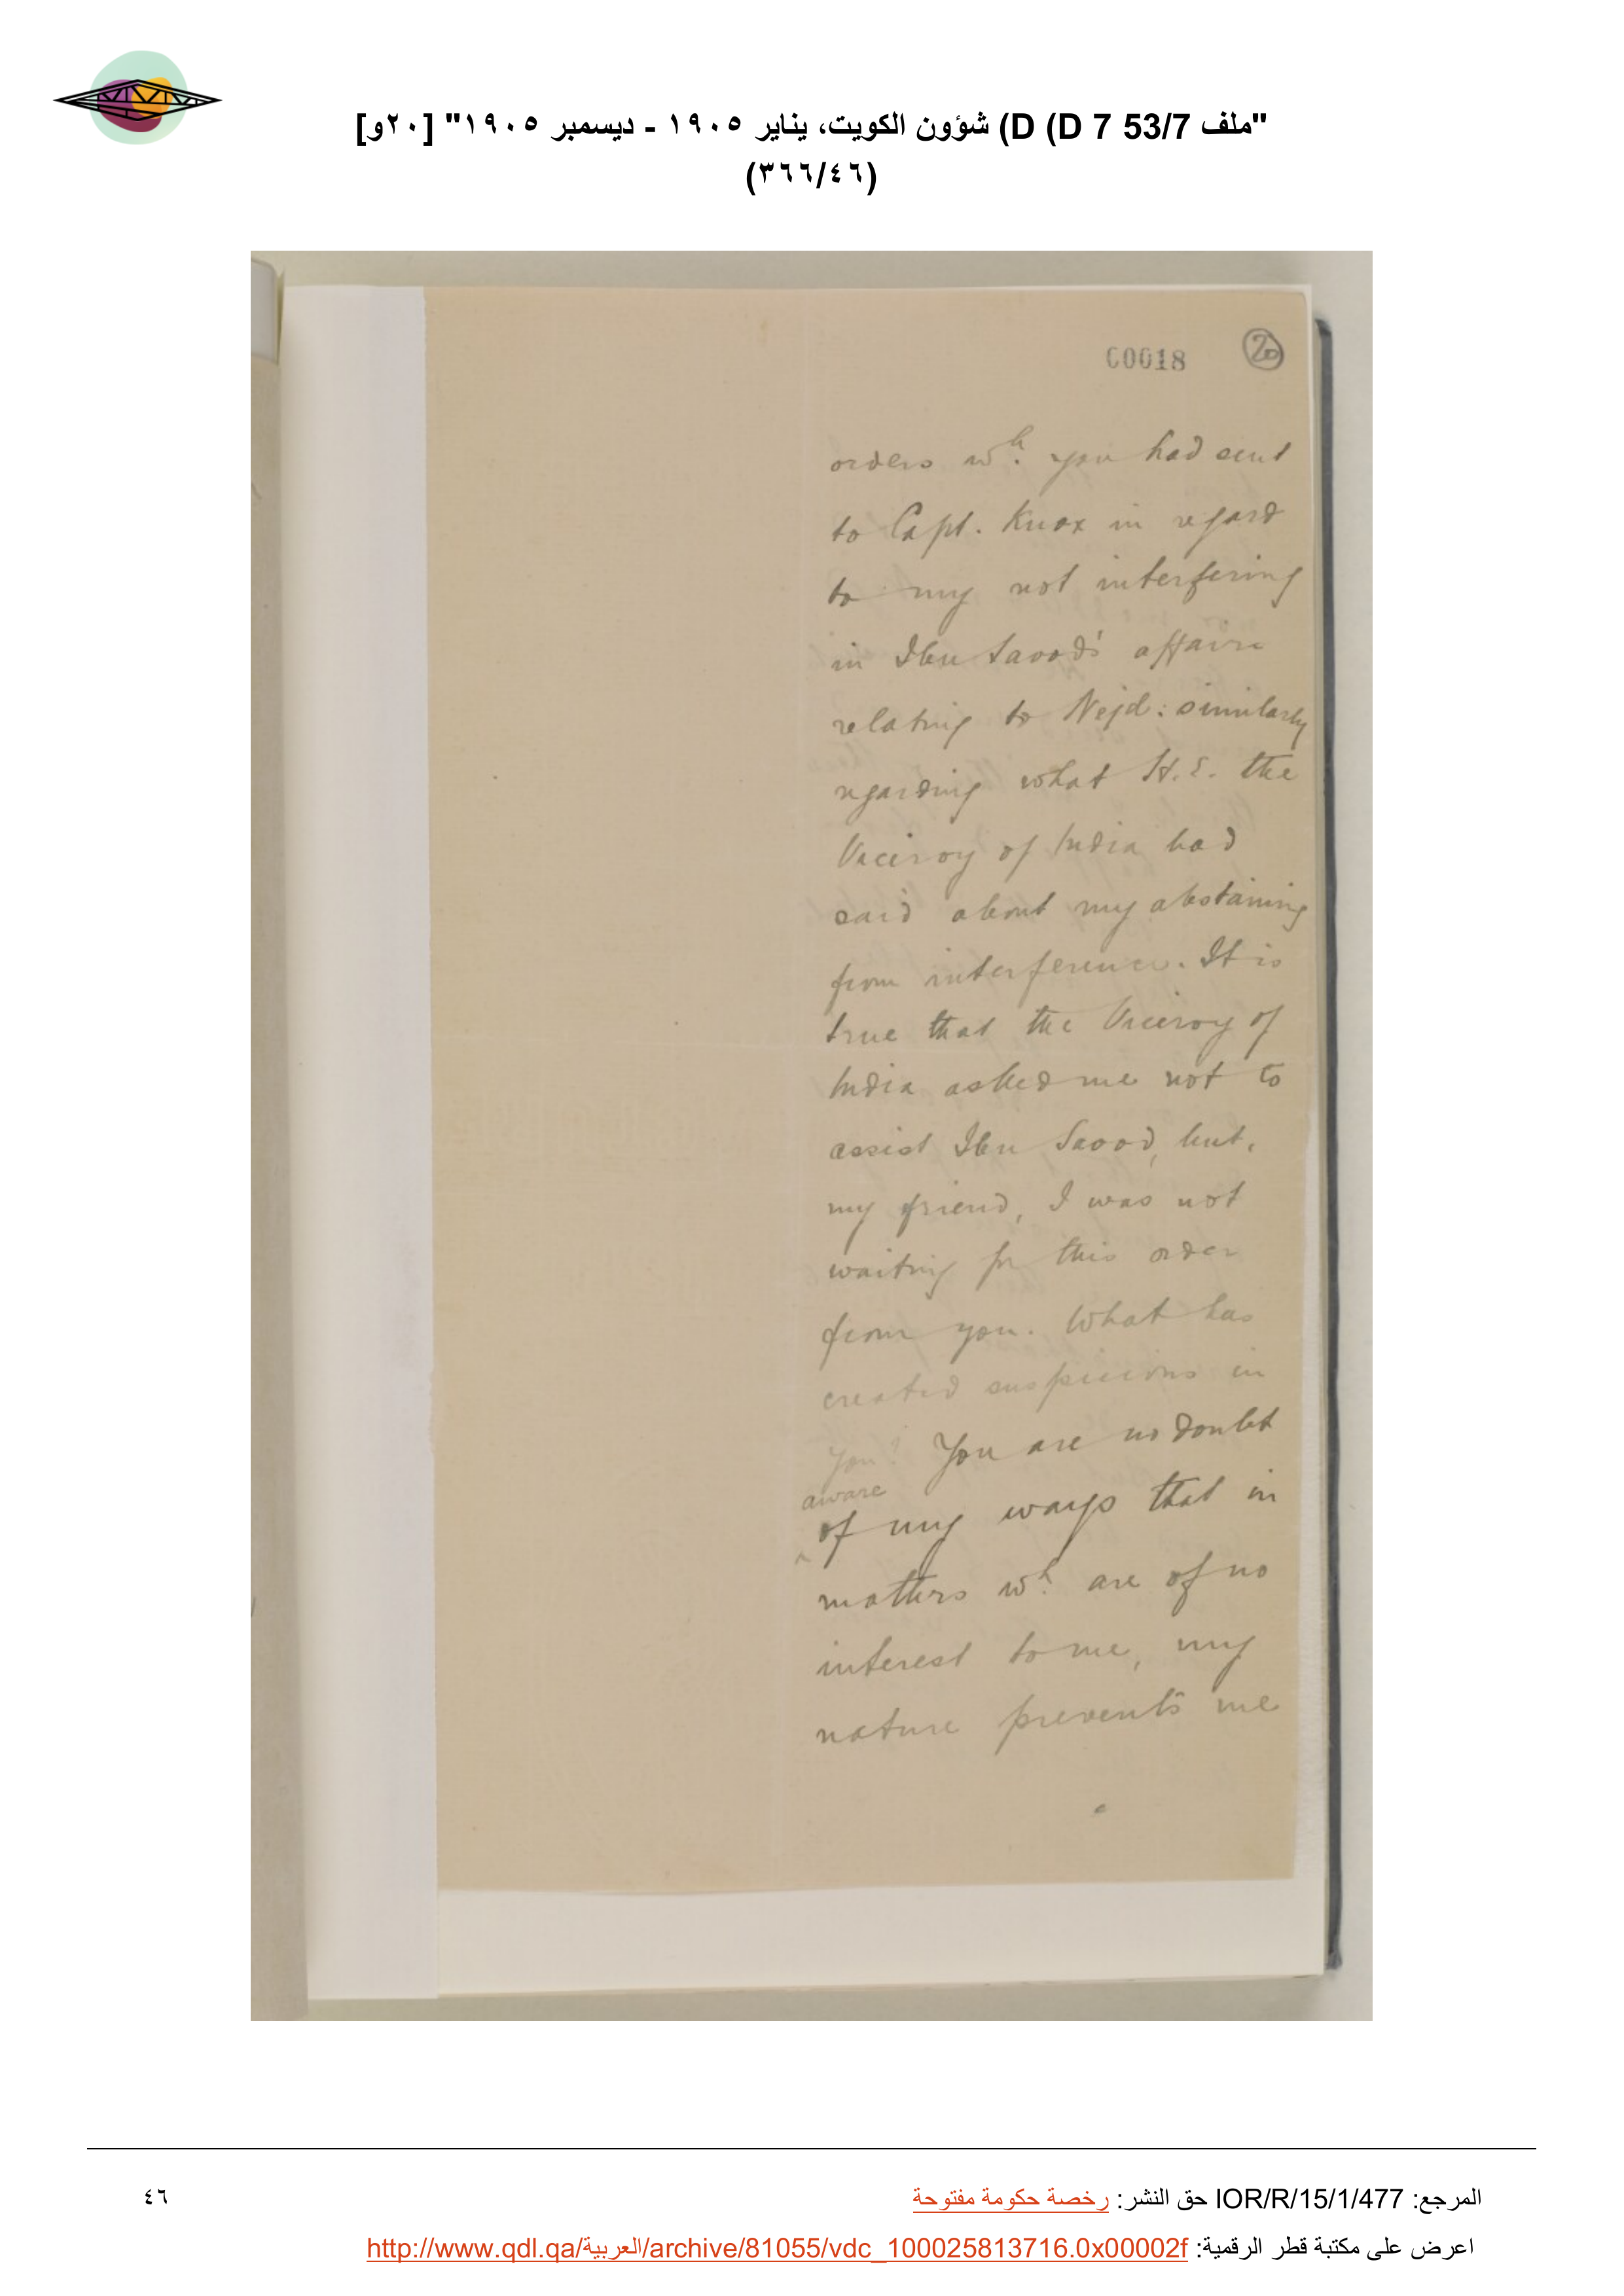 "ملف 53/7 D (D 7) شؤون الكويت، يناير ١٩٠٥ - ديسمبر ١٩٠٥" [٢٠و]
(٣٦٦/٤٦)
00018 20
orders wh. you had sent
to Capt. Knox in regard
to my not interfering
in Ibn Saood's affairs
relating to Nejd: similarly
regarding what H.E. the
Viceroy of India had
said about my abstaining
from interference. It is
true that the Viceroy of
India asked me not to
assist Ibn Saood, but,
my friend, I was not
waiting for this order
from you. What has
created suspicions in
you? You are no doubt
aware
of my ways that in
matters wh. are of no
interest to me, my
nature prevents me
المرجع: IOR/R/15/1/477 حق النشر: رخصة حكومة مفتوحة
٤٦
اعرض على مكتبة قطر الرقمية: http://www.qdl.qa/العربية/archive/81055/vdc_100025813716.0x00002f